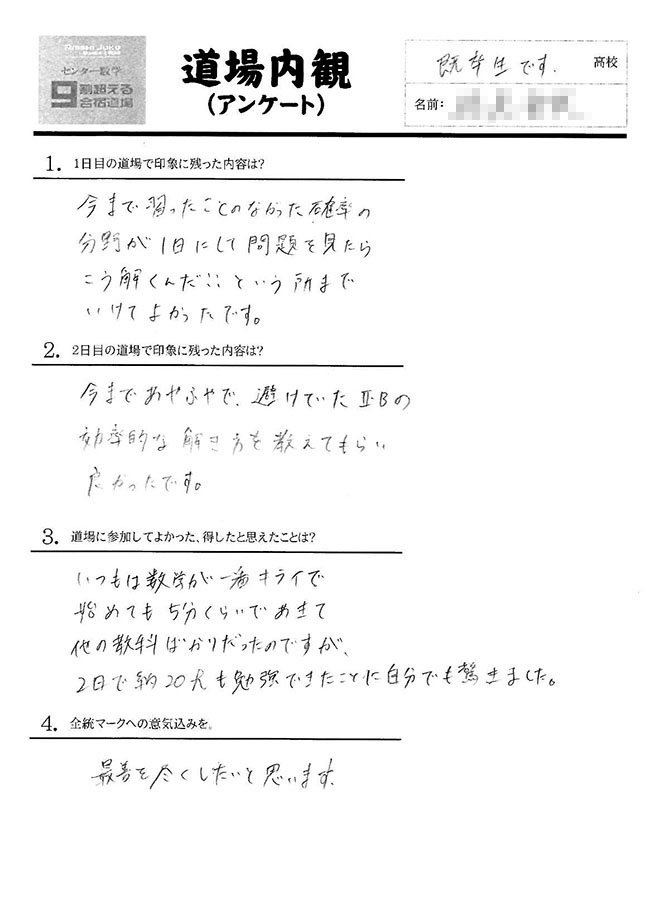 センター数学
9割超える
合宿道場
道場内観
(アンケート)
既卒生です. 高校
名前:
1. 1日目の道場で印象に残った内容は?
今まで習ったことのなかった確率の
分野が1日にして問題を見たら
こう解くんだ!!という所まで
いけてよかったです。
2. 2日目の道場で印象に残った内容は?
今まであやふやで、避けていたⅡ・Bの
効率的な解き方を教えてもらい
良かったです。
3. 道場に参加してよかった、得したと思えたことは?
いつもは数学が一番キライで
始めても5分くらいであきて
他の教科ばかりだったのですが、
2日で約20hも勉強できたことに自分でも驚きました。
4. 全統マークへの意気込みを。
最善を尽くしたいと思います.